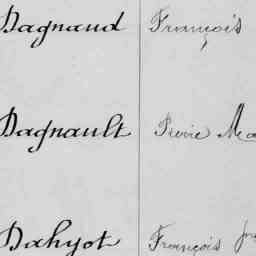 Dagnaud François
Dagnault Pierre
Dahyot François